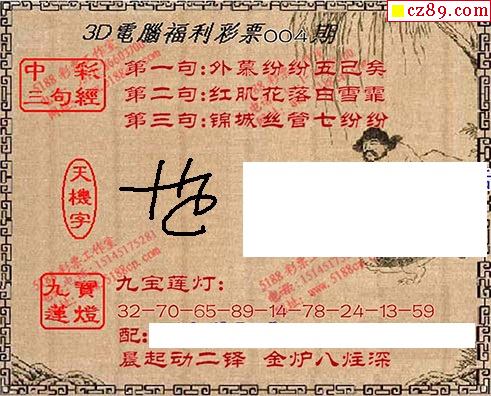 cz89.com
3D電腦福利彩票004期
中彩
三句經
第一句:外慕纷纷五已矣
第二句:红肌花落白雪霏
第三句:锦城丝管七纷纷
天機字
九寶
蓮燈
九宝莲灯:
32-70-65-89-14-78-24-13-59
配:
晨起动二铎 金炉八炷深